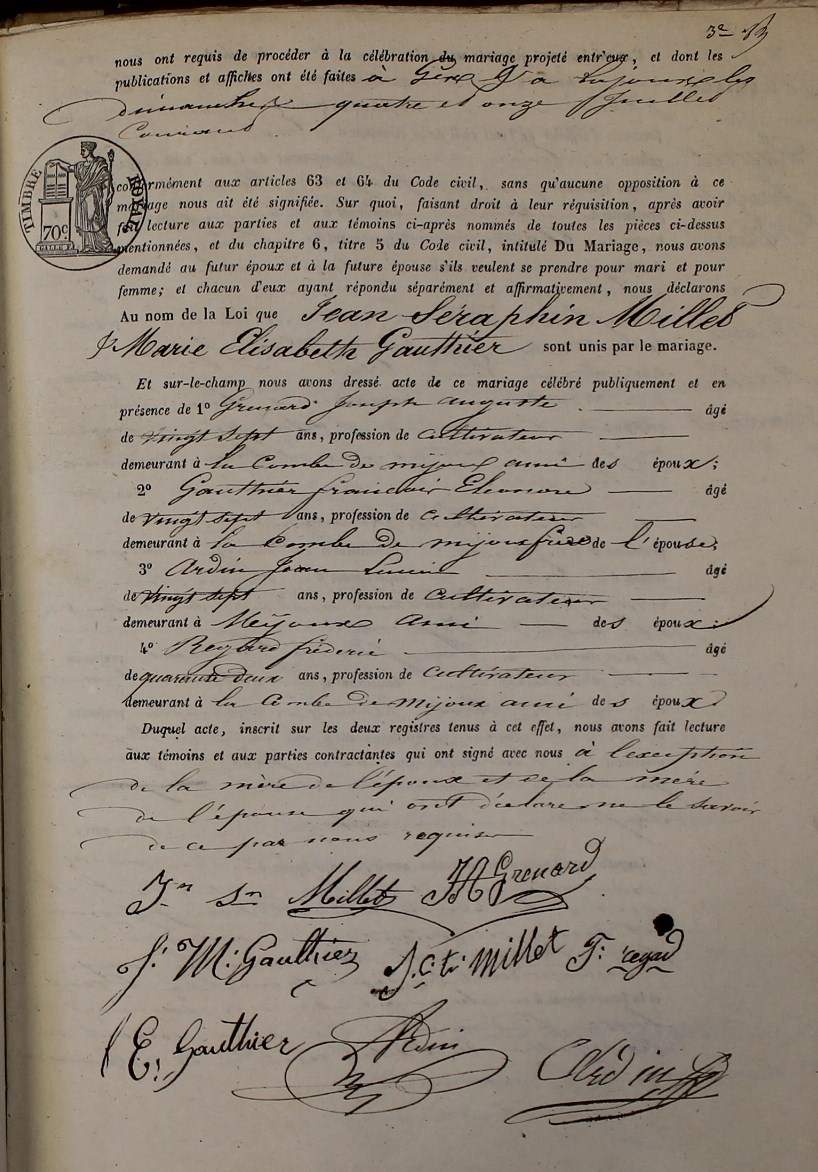 3e
nous ont requis de procéder à la célébration du mariage projeté entr'eux, et dont les
publications et affiches ont été faites à Gex & à Lajoux les
dimanches quatre et onze Juillet
Courant
TIMBRE ROYAL
70c
conformément aux articles 63 et 64 du Code civil, sans qu'aucune opposition à ce
mariage nous ait été signifiée. Sur quoi, faisant droit à leur réquisition, après avoir
fait lecture aux parties et aux témoins ci-après nommés de toutes les pièces ci-dessus
mentionnées, et du chapitre 6, titre 5 du Code civil, intitulé Du Mariage, nous avons
demandé au futur époux et à la future épouse s'ils veulent se prendre pour mari et pour
femme; et chacun d'eux ayant répondu séparément et affirmativement, nous déclarons
Au nom de la Loi que Jean Séraphin Millet
& Marie Elisabeth Gauthier sont unis par le mariage.
Et sur-le-champ nous avons dressé acte de ce mariage célébré publiquement et en
présence de 1o Grenard Joseph auguste âgé
de vingt sept ans, profession de cultivateur
demeurant à la Combe de mijoux ami des époux;
2o Gauthier françois Eleonore âgé
de vingt sept ans, profession de cultivateur
demeurant à la Combe de mijoux frère de l'épouse;
3o Ardin Jean âgé
de vingt sept ans, profession de cultivateur
demeurant à Mijoux ami des époux;
4o Regard fréderic âgé
de quarante deux ans, profession de cultivateur
demeurant à la Combe de mijoux ami des époux
Duquel acte, inscrit sur les deux registres tenus à cet effet, nous avons fait lecture
aux témoins et aux parties contractantes qui ont signé avec nous à l'exception
de la mère de l'époux et de la mère
de l'épouse qui ont déclaré ne le savoir
de ce par nous requises
Jn Sn Millet JA Grenard
f. M. Gauthier J. C. t. Millet F. regad
E. Gauthier Ardin